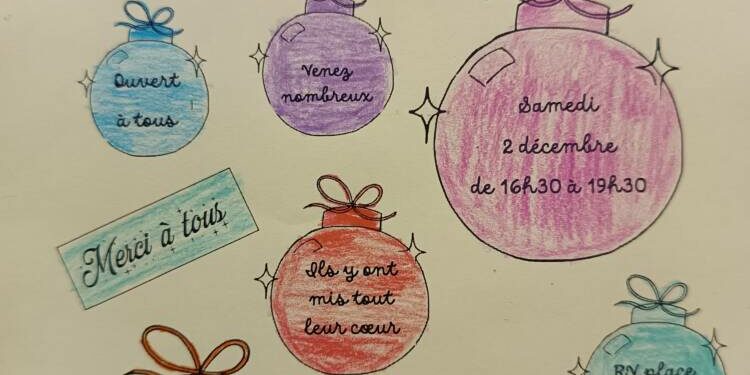 Ouvert
à tous
Venez
nombreux
Samedi
2 décembre
de 16h30 à 19h30
Merci à tous
Ils y ont
mis tout
leur cœur
RN place